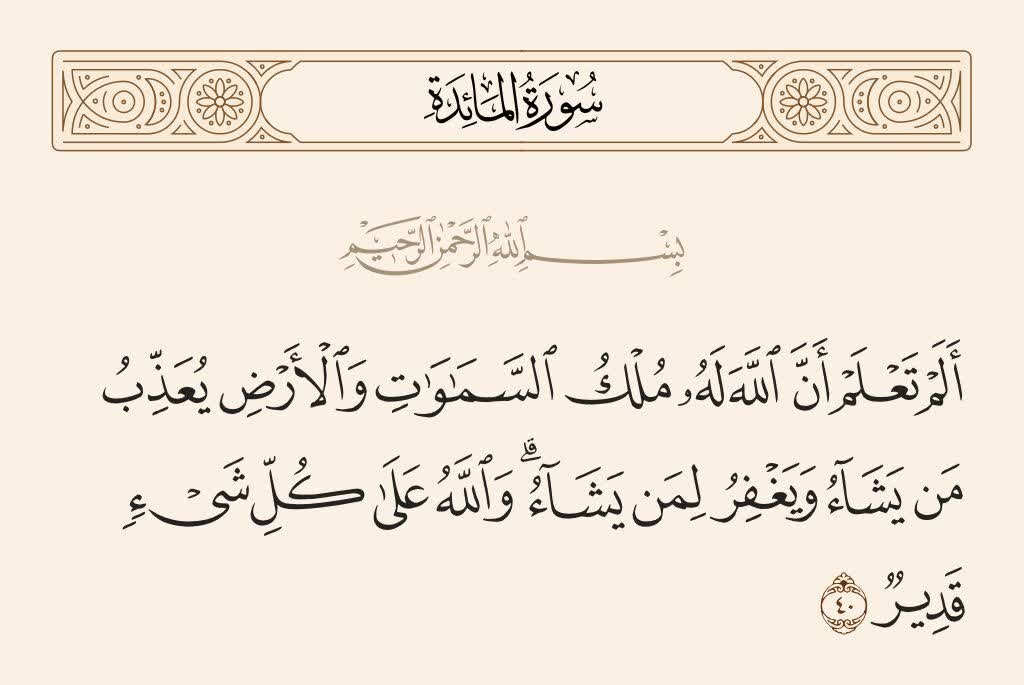 سُورَةُ المَائِدَةِ
بِسْمِ ٱللَّهِ ٱلرَّحْمَٰنِ ٱلرَّحِيمِ
أَلَمْ تَعْلَمْ أَنَّ ٱللَّهَ لَهُۥ مُلْكُ ٱلسَّمَٰوَٰتِ وَٱلْأَرْضِ يُعَذِّبُ
مَن يَشَآءُ وَيَغْفِرُ لِمَن يَشَآءُ ۗ وَٱللَّهُ عَلَىٰ كُلِّ شَىْءٍ
قَدِيرٌ ٤٠